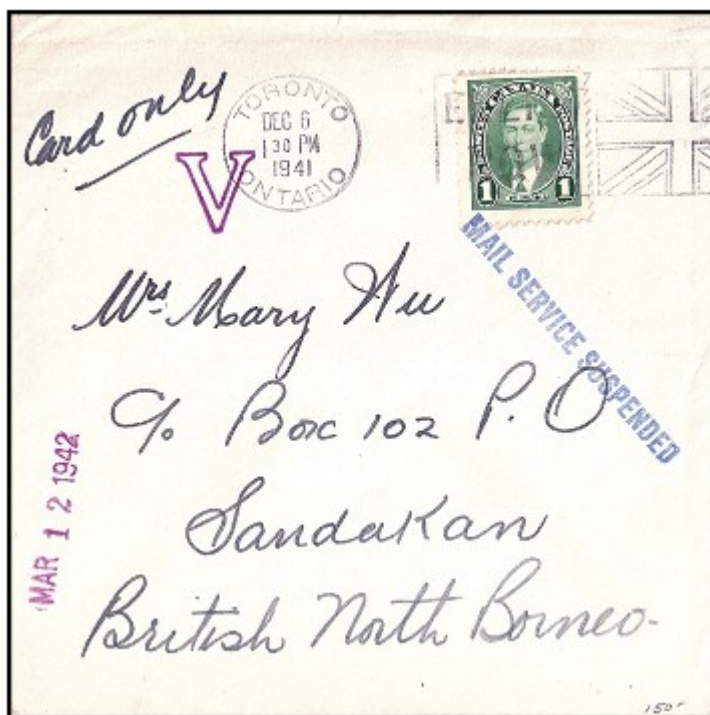 Card only
TORONTO
DEC 6
1 30 PM
1941
ONTARIO
V
1 1
MAIL SERVICE SUSPENDED
Mrs. Mary Wu
c/o Box 102 P.O
Sandakan
British North Borneo
MAR 12 1942
150-